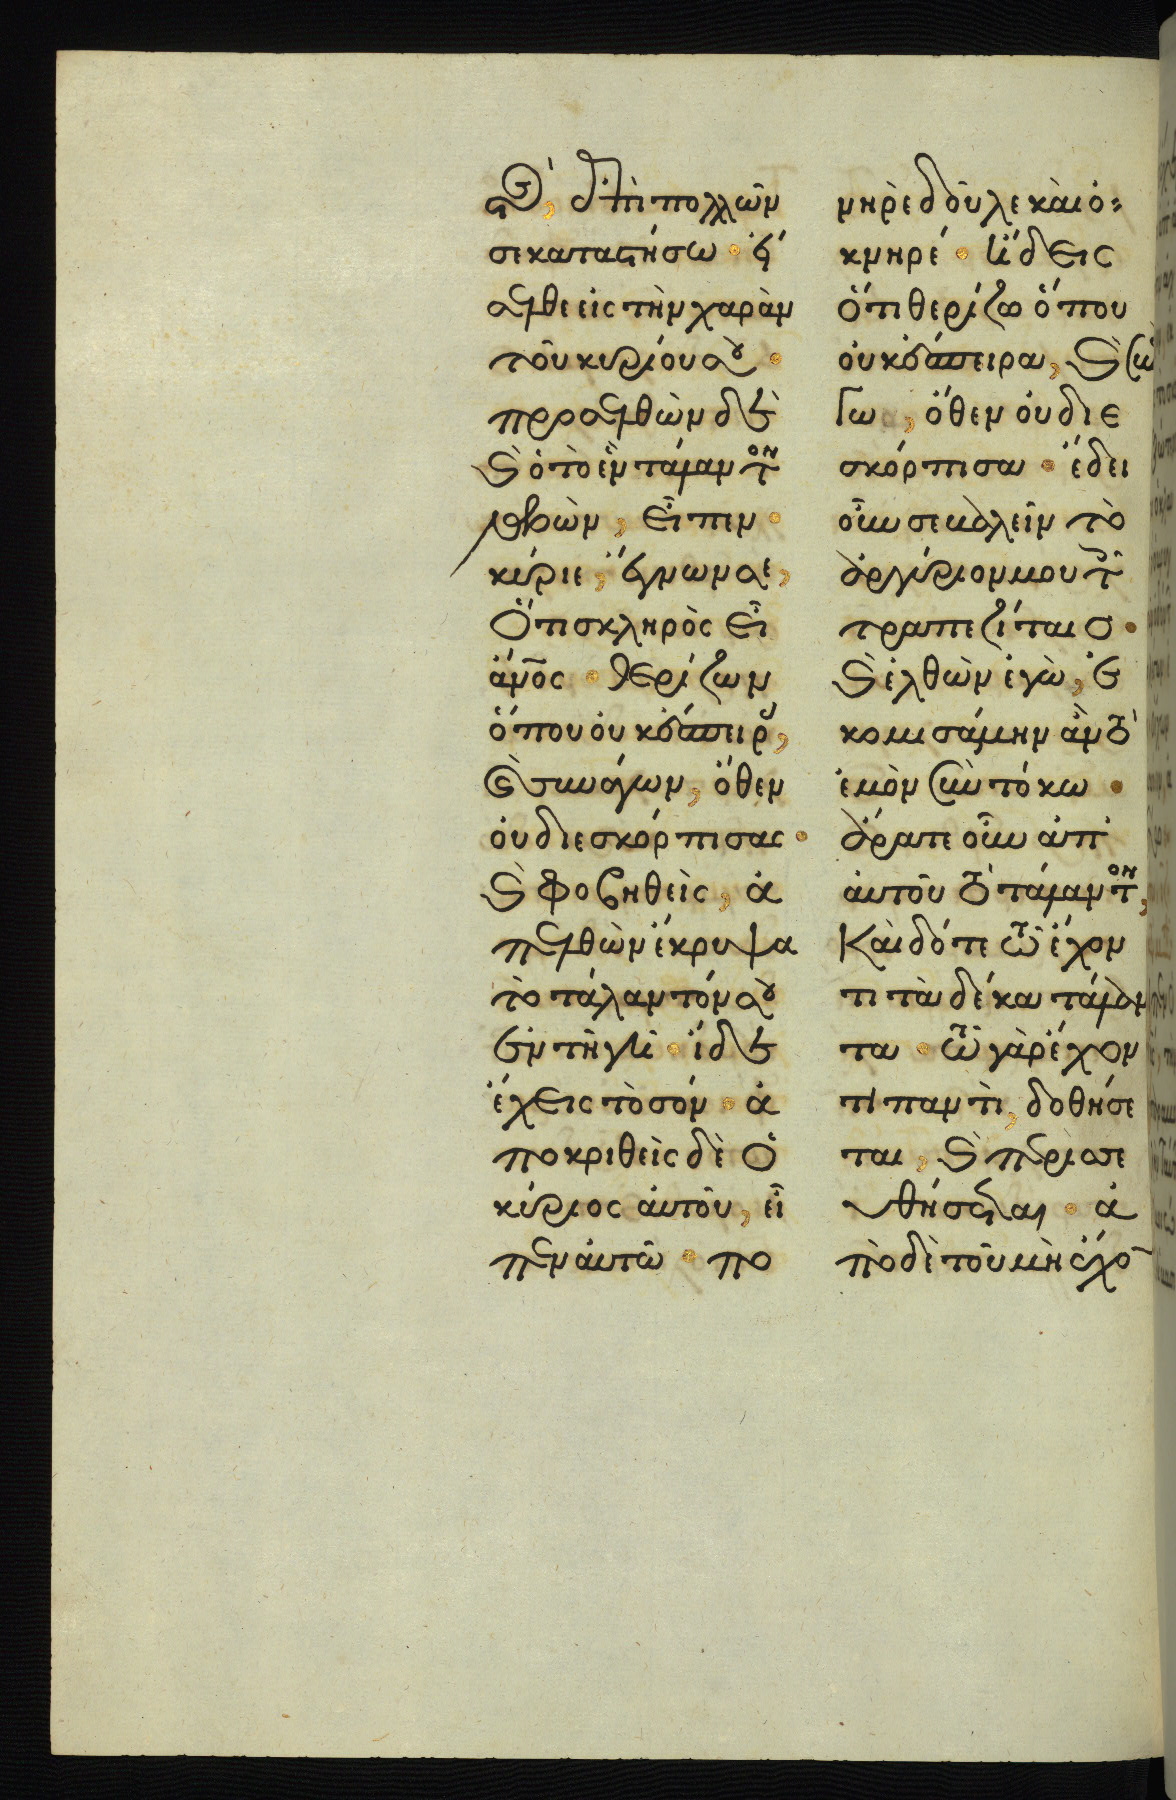 στός, ἐπὶ πολλῶν
σε καταστήσω · εἴ
σελθε εἰς τὴν χαρὰν
τοῦ κυρίου σου ·
προσελθὼν δὲ
καὶ ὁ τὸ ἓν τάλαντον
λαβὼν, εἶπεν ·
κύριε, ἔγνων σε,
ὅτι σκληρὸς εἶ
ἄνος · θερίζων
ὅπου οὐκ ἔσπειρας,
καὶ συνάγων, ὅθεν
οὐ διεσκόρπισας ·
καὶ φοβηθεὶς, ἀ
πελθὼν ἔκρυψα
τὸ τάλαντόν σου
ἐν τῆ γῆ · ἴδε
ἔχεις τὸ σόν · ἀ
ποκριθεὶς δὲ ὁ
κύριος αὐτοῦ, εἶ
πεν αὐτῶ · πο
νηρὲ δοῦλε καὶ ὀ
κνηρέ · ἤδεις
ὅτι θερίζω ὅπου
οὐκ ἔσπειρα, καὶ συνά
γω, ὅθεν οὐ διε
σκόρπισα · ἔδει
οὖν σε βαλεῖν τὸ
ἀργύριον μου τοῖς
τραπεζίταις ·
καὶ ἐλθὼν ἐγὼ, ἐ
κομισάμην ἂν τὸ
ἐμὸν σὺν τόκω ·
ἄρατε οὖν ἀπ'
αὐτοῦ τὸ τάλαντον,
καὶ δότε τῶ ἔχον
τι τὰ δέκα τάλαν
τα · τῶ γὰρ ἔχον
τι παντὶ, δοθήσε
ται, καὶ περισσε
υθήσεται · ἀ
πὸ δὲ τοῦ μὴ ἔχο